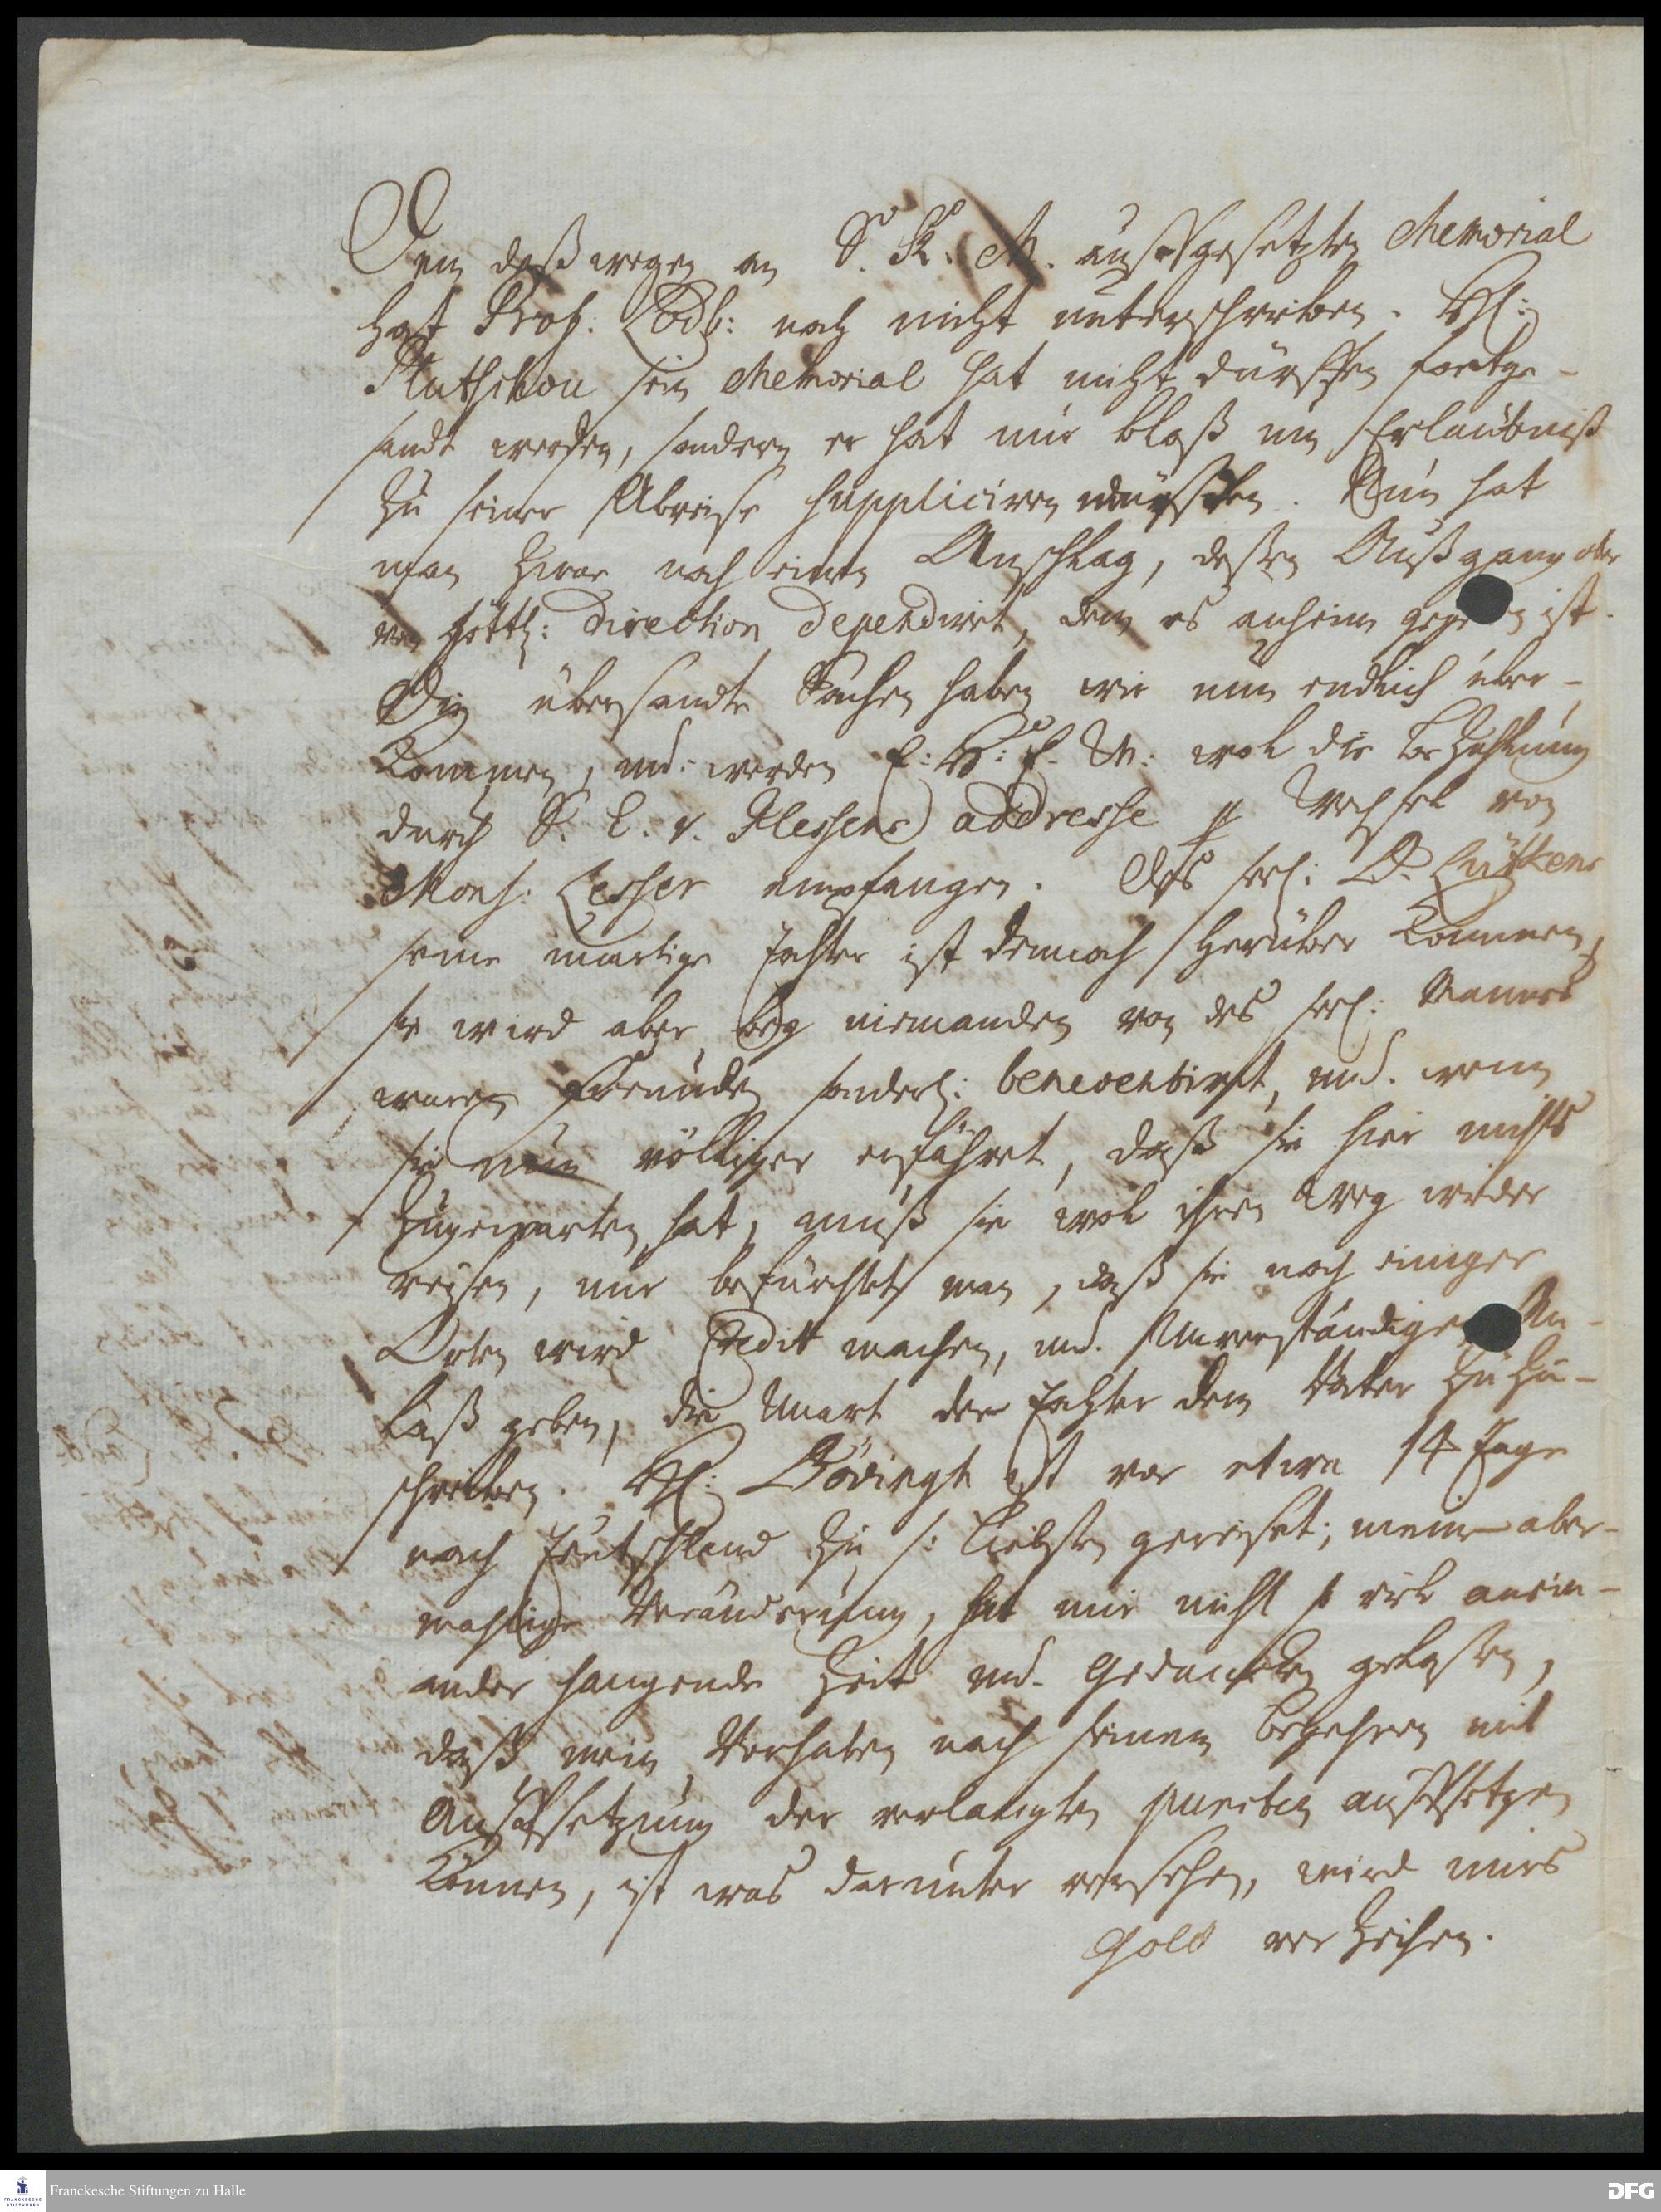 Dem deßwegen an S. K. M. auffgesetzten Memorial
hat Prof: Lodb: noch nicht unterschrieben. H:
Pluthschou sein Memorial hat nicht dürffen fortge-
sandt werden, sondern er hat nur bloß um Erlaubniß
zu seiner Abreise suppliciren müssen. Nun hat
man zwar noch einen Anschlag, deßen Außgang aber
von göttl: direction dependiret, dem es anheim gegeben ist.
Die übersandte Sachen haben wir nun endlich über-
kommen, und werden E: H: E. M: wol die Bezahlung
durch S. E. v. Plessens addresse Wechsel von
Mons: Lesser empfangen. Des seel: D. Lütkens
seine unartige Tochter ist dennoch herüber kommen,
sie wird aber bey niemanden von des seel: Mannes
waren Freunden sonderl: beneventiret, und. wenn
sie nun völliger erfähret, daß sie hier nichts
zugewarten hat, muß sie wol ihren Weg wieder
reisen, nur befürchtet man, daß sie noch einiger
Orten wird Credit machen, und. Unverständigen An-
laß geben, die Unart der Tochter dem Vater zu zu-
schreiben. H: Bövingh ist vor etwa 14 Tage
nach Teutschland zu s: Liebsten gereiset; meine aber-
mahlige Veränderung, hat mir nicht so viel anein-
ander hangende Zeit und. Gedancken gelaßen,
daß mein Vorhaben nach seinem Begehren mit
Auffsetzung der verlangten puncten auffsetzen
können, ist was darunter versehen, wird mirs
Gott verzeihen.
Franckesche Stiftungen zu Halle
FRANCKESCHE STIFTUNGEN
DFG